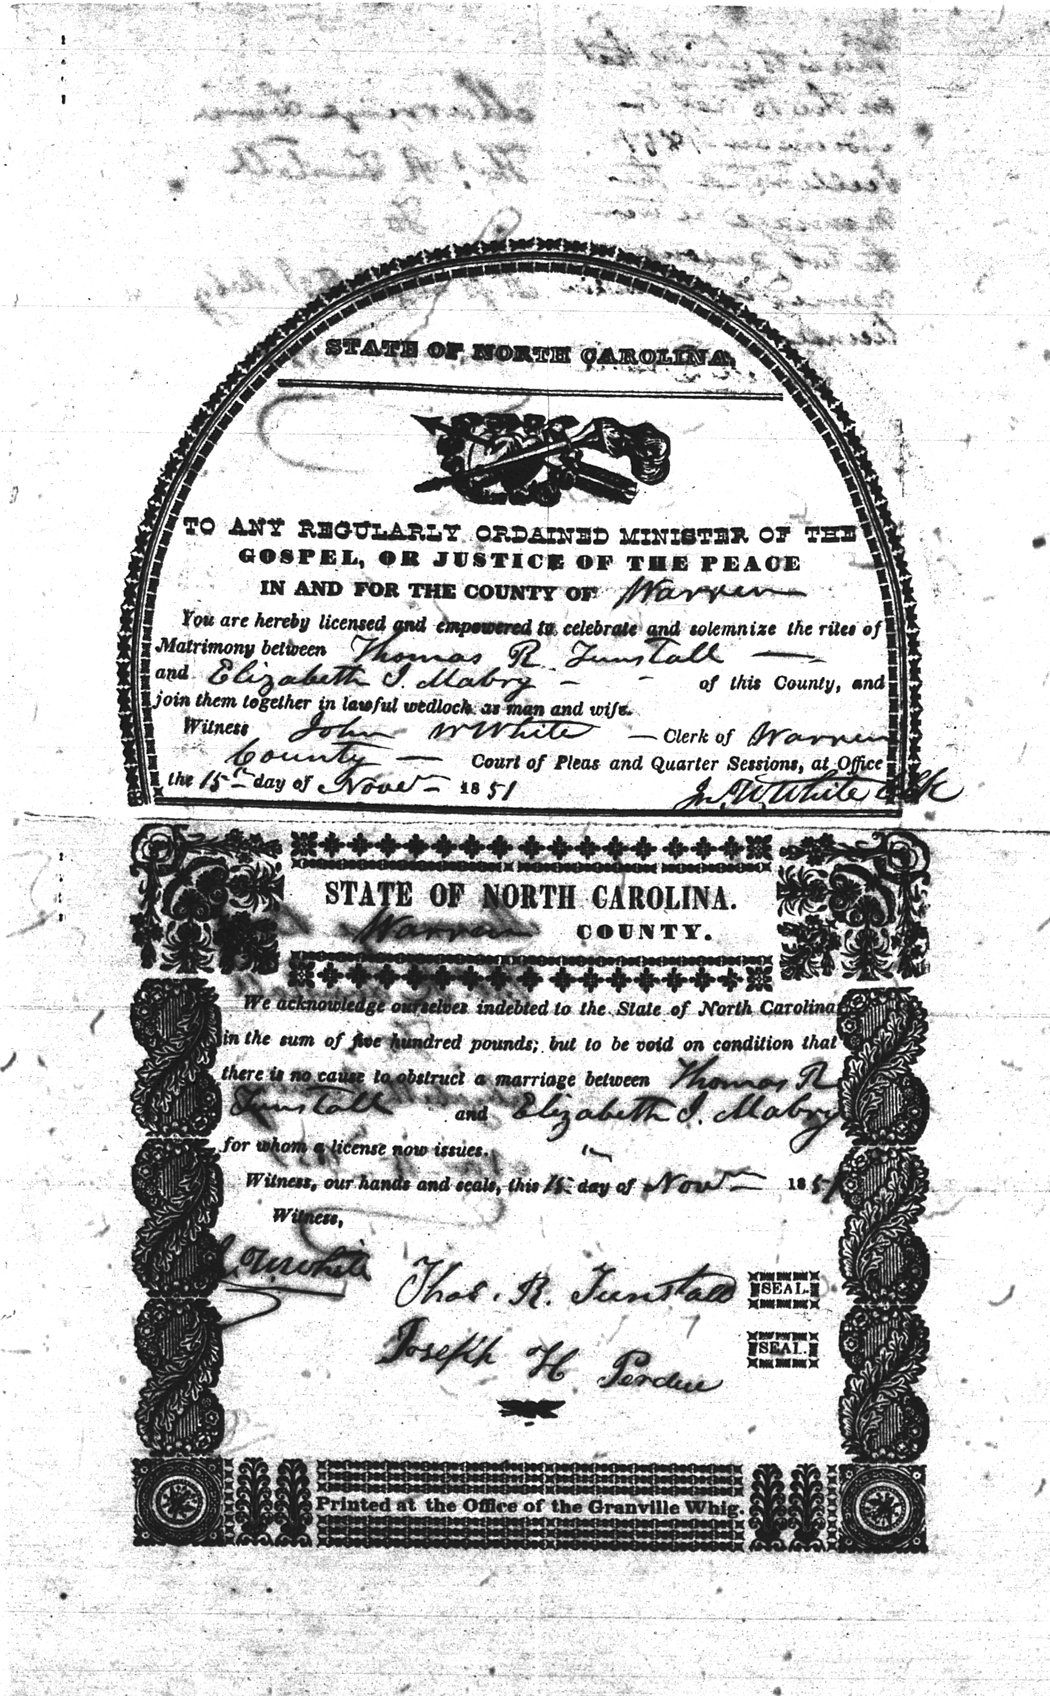 STATE OF NORTH CAROLINA.
TO ANY REGULARLY ORDAINED MINISTER OF THE
GOSPEL, OR JUSTICE OF THE PEACE
IN AND FOR THE COUNTY OF Warren
You are hereby licensed and empowered to celebrate and solemnize the rites of
Matrimony between Thomas R. Tunstall —
and Elizabeth I. Mabry - - of this County, and
join them together in lawful wedlock as man and wife.
Witness John W White — Clerk of Warren
County — Court of Pleas and Quarter Sessions, at Office
the 15th day of Novr 1851
Jno. W. White Clk
STATE OF NORTH CAROLINA.
Warren COUNTY.
We acknowledge ourselves indebted to the State of North Carolina
in the sum of five hundred pounds; but to be void on condition that
there is no cause to obstruct a marriage between Thomas R
Tunstall and Elizabeth I. Mabry
for whom a license now issues.
Witness, our hands and seals, this 15th day of Novr 1851
Witness,
J. W. White
Thos. R. Tunstall SEAL.
Joseph H Perdue SEAL.
Printed at the Office of the Granville Whig.